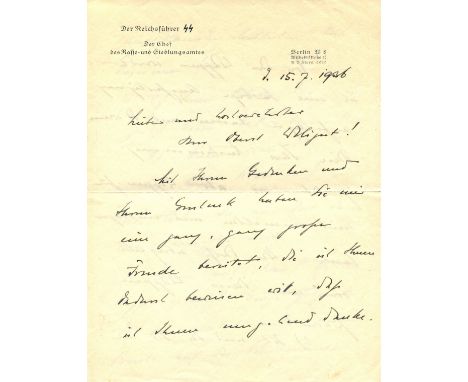 Der Reichsführer SS
Der Chef
des Rasse- und Siedlungsamtes
Berlin
15.7.1936
Lieber und hochverehrter
Herr Oberst Wiligut!
Mit Ihrem Gedenken und
Ihrem haben Sie mir
eine ganz, ganz große
Freude bereitet, die ich Ihnen
dadurch beweisen will, daß
ich Ihnen umgehend danke.